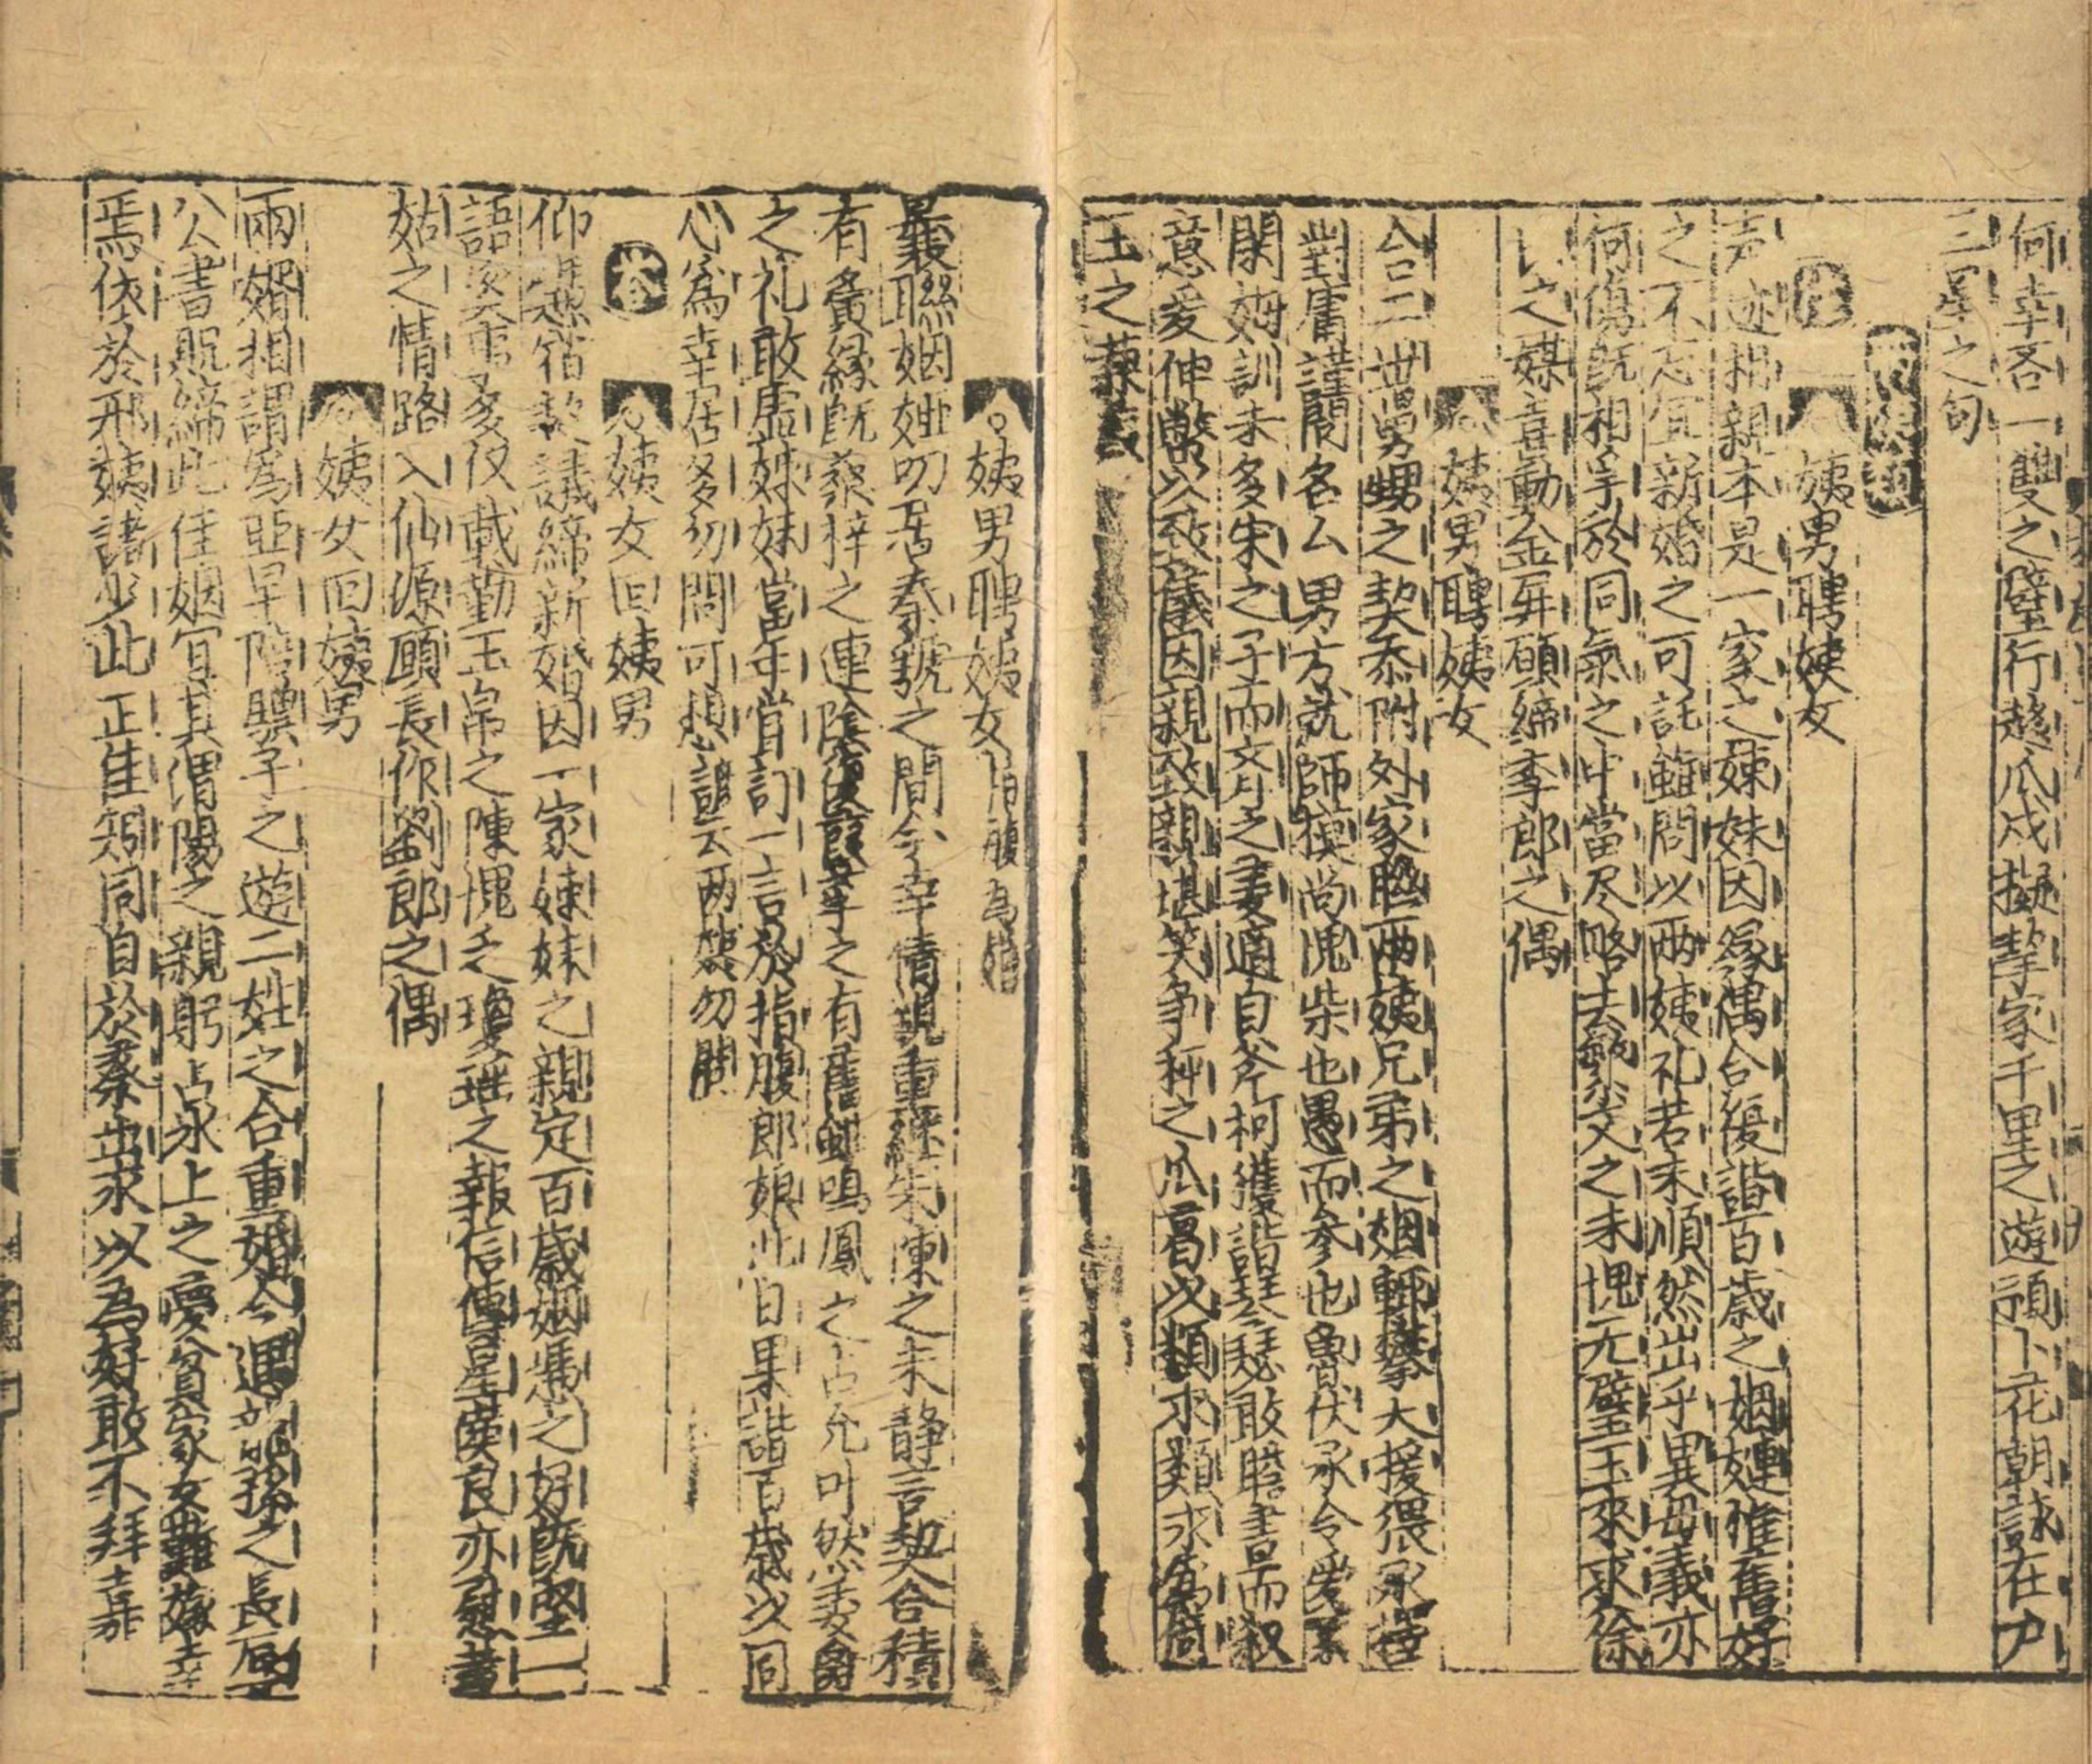 何幸吝一雙之璧行趂瓜戍擬挈家千里之遊預卜花朝詠在戶
三星之句
姨男聘姨女
声迹相親本是一家之姊妹因縁偶合復諧百歲之姻婕惟舊好
之不忘宜新婚之可託雖問以兩姨礼若未順然出乎異母義亦
何傷既相孚於同氣之中當尽略去繁文之末愧无璧玉來求徐
之媒喜動金屏願締李郎之偶
姨男聘姨女
合二世舅甥之契忝附外家聮兩姨兄弟之姻輙攀大援猥承
對庸謹閤名公男方就師模尚愧柴也愚而参也魯伏承令愛
閑姆訓未多宋之子而齐之妻適自斧柯獲諧琴瑟敢瞻書而叙
意爰伸幣以致儀因親致親堪笑爭秤之瓜葛以類求類求為倚
玉之蒹葭
姨男聘姨女 指腹為婚
義聮姻婭叨居秦虢之間今幸情親重繼朱陳之未静言契合積
有夤緣既桑梓之連陰復葭莩之有舊鏘鳴鳳之占允叶然委禽
之礼敢虚姊妹當年嘗訂一言於指腹郎娘此日果諧百歲以同
心為幸居多勿問可想 諺云兩姨勿問
荅
姨女回姨男
仰慿宿契議締新婚因一家姊妹之親定百歲婣媾之好既堅二
語奚事多仪載勤玉帛之陳愧乏瓊瑶之報信傳星漢良亦慰黃
姑之情路入仙源願長作劉郎之偶
姨女回姨男
兩婿相謂為亞早陪驃子之遊二姓之合重婚今遇龍孫之長
公書貺締此佳姻冝其渭陽之親躬占氷上之夣貧家女難嫁幸
焉依於邢姨諸少此正佳矧同自於秦出求以為好敢不拜嘉